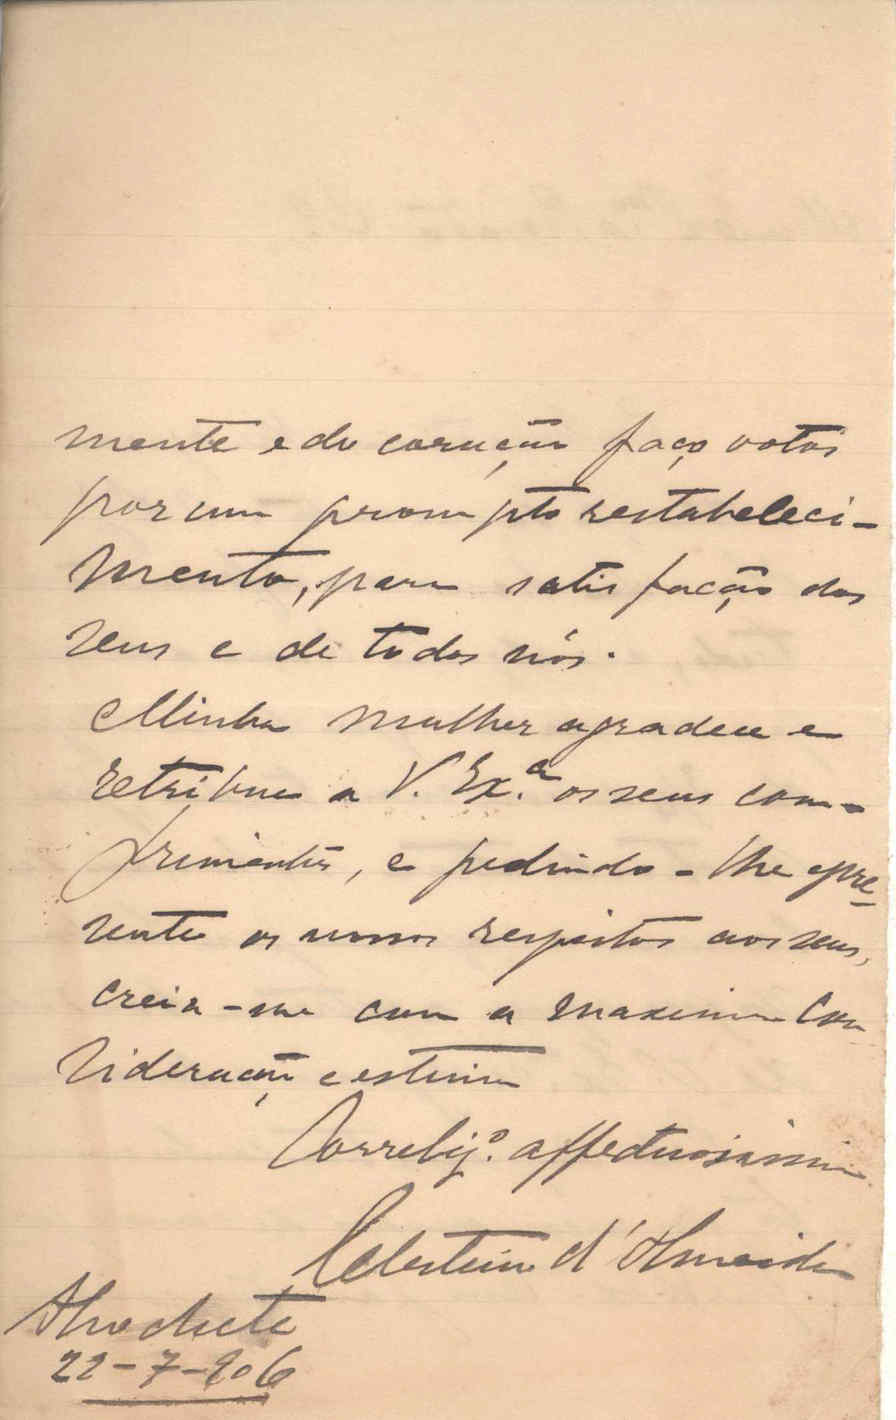 mente e do coração faço votos
por um prompto restabeleci-
mento, para satisfação dos
seus e de todos nós.
Minha mulher agradece e
retribue a V. Ex.ª os seus com-
primentos, e pedindo-lhe apre-
sente os nossos respeitos aos seus,
creia-me com a maxima con
sideração e estima
Correlig.º affectuosissimo
Celestino d'Almeida
Alcochete
22-7-906